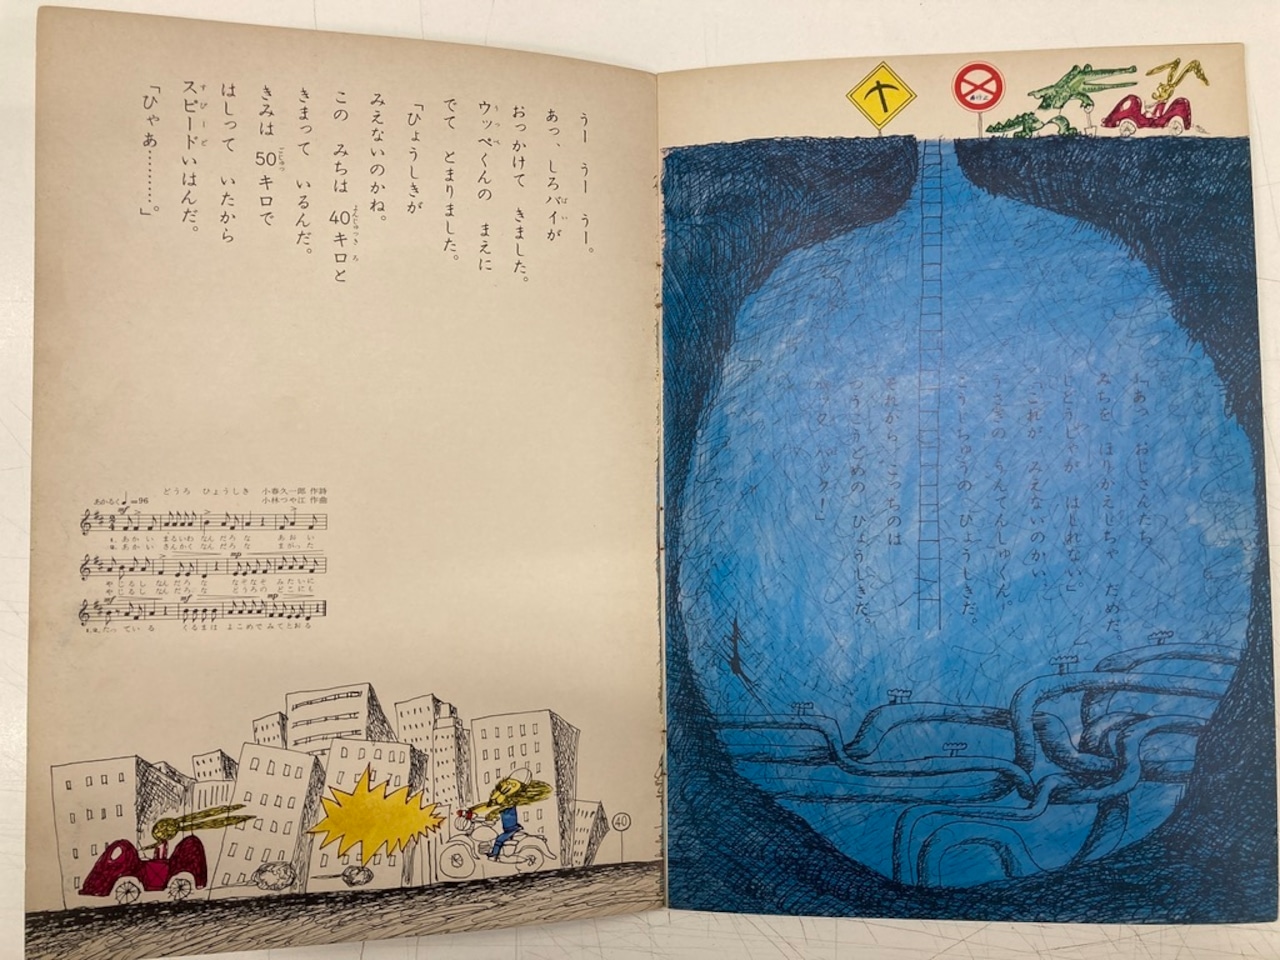 うー うー うー。
あっ、しろバイが
おっかけて きました。
ウッペくんの まえに
でて とまりました。
「ひょうしきが
みえないのかね。
この みちは 40キロと
きまって いるんだ。
きみは 50キロで
はしって いたから
スピードいはんだ。
「ひゃあ…………。」
どうろ ひょうしき 小春久一郎 作詩
小林つや江 作曲
あかるく ♩=96
mf
1. あかい まるいわ なんだろな あおい
2. あかい さんかく なんだろな まがった
mp
やじるし なんだろな なぞなぞ みたいに
やじるし なんだろな どうろの どこにも
mf mp
1.2. たっている くるまは よこめで みてとおる
40
「あっ、おじさんたち、
みちを ほりかえしちゃ だめだ。
じどうしゃが はしれない。」
「これが みえないのかい、
うさぎの うんてんしゅくん。
こうじちゅうの ひょうしきだ。
それから、こっちのは
つうこうどめの ひょうしきだ。
バック、バック！」